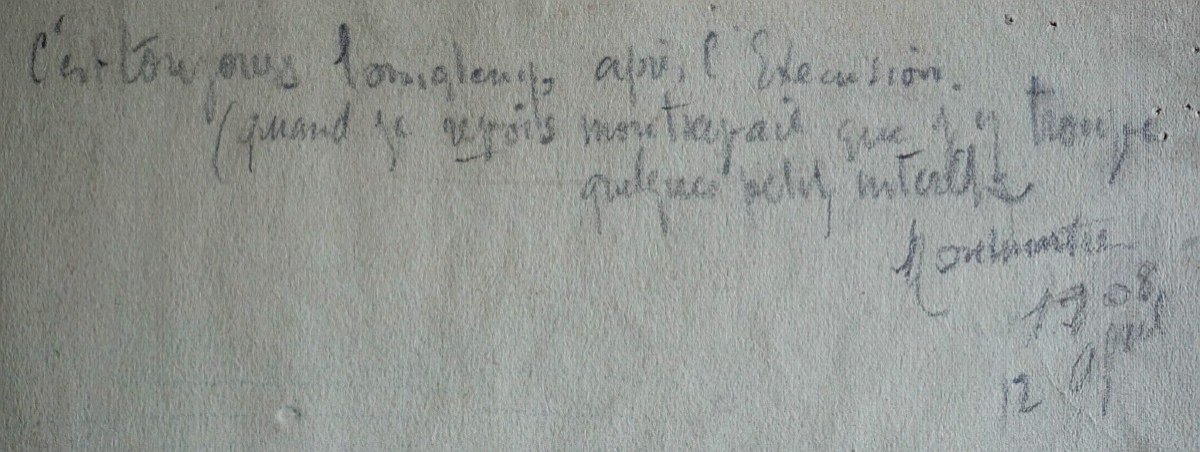 C'est toujours longtemps après l'Execusion.
(quand je revois mon travail que j'y trouve
quelques petits
Montmartre
1908
12 April